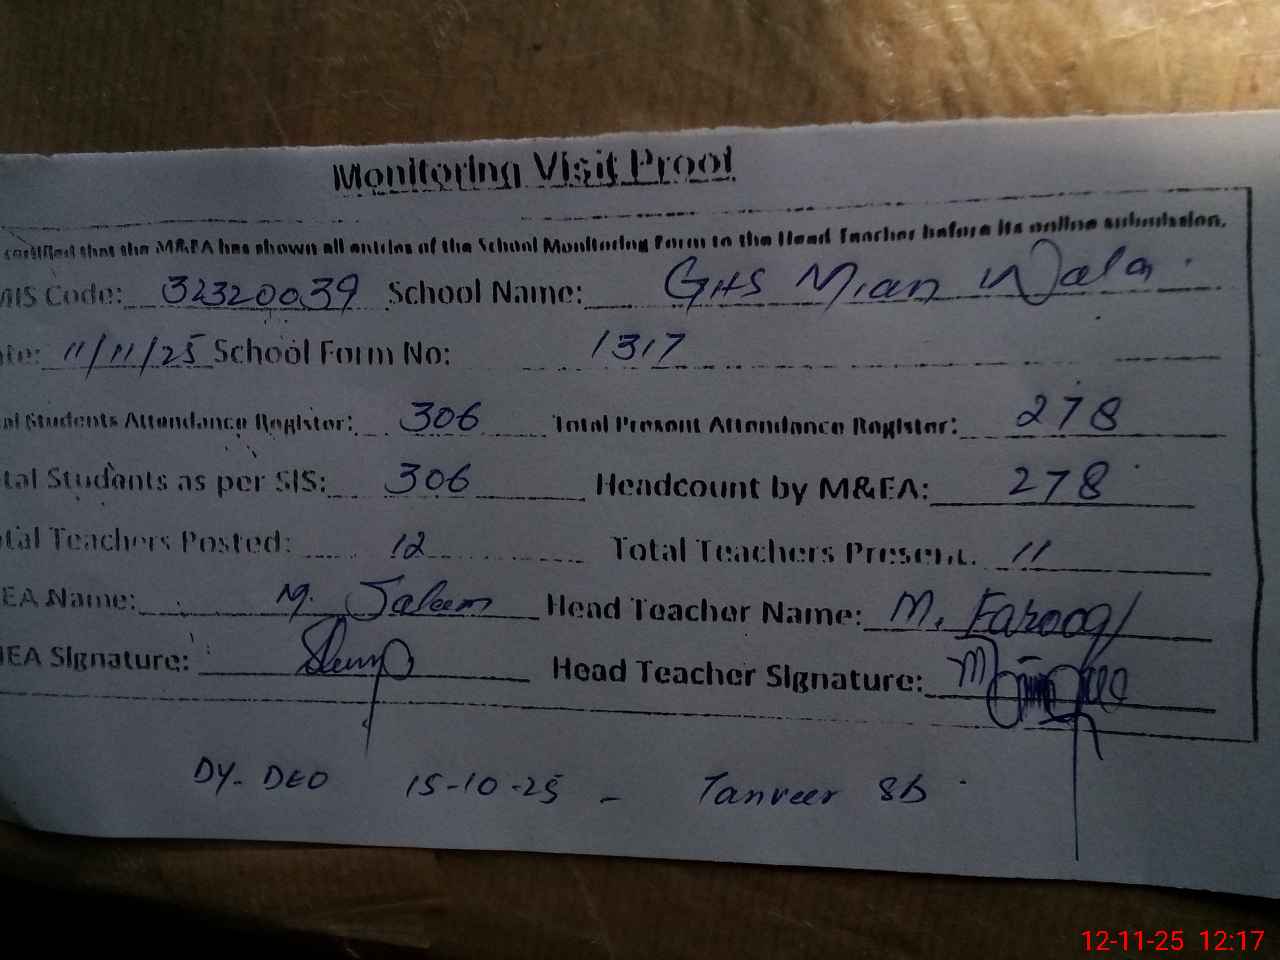 Monitoring Visit Proof
certified that the M&EA has shown all entries of the School Monitoring Form to the Head Teacher before its online submission.
MIS Code: 32320039 School Name: GHS Mian Wala
te: 11/11/25 School Form No: 1317
al Students Attendance Register: 306 Total Present Attendance Register: 278
tal Students as per SIS: 306 Headcount by M&EA: 278
tal Teachers Posted: 12 Total Teachers Present. 11
EA Name: M. Saleem Head Teacher Name: M. Farooq
EA Signature: Head Teacher Signature:
DY. DEO 15-10-25 - Tanveer Sb
12-11-25 12:17